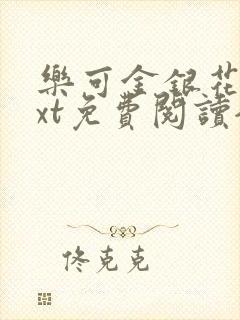 樂可金銀花
xt免費閱讀
佟克克